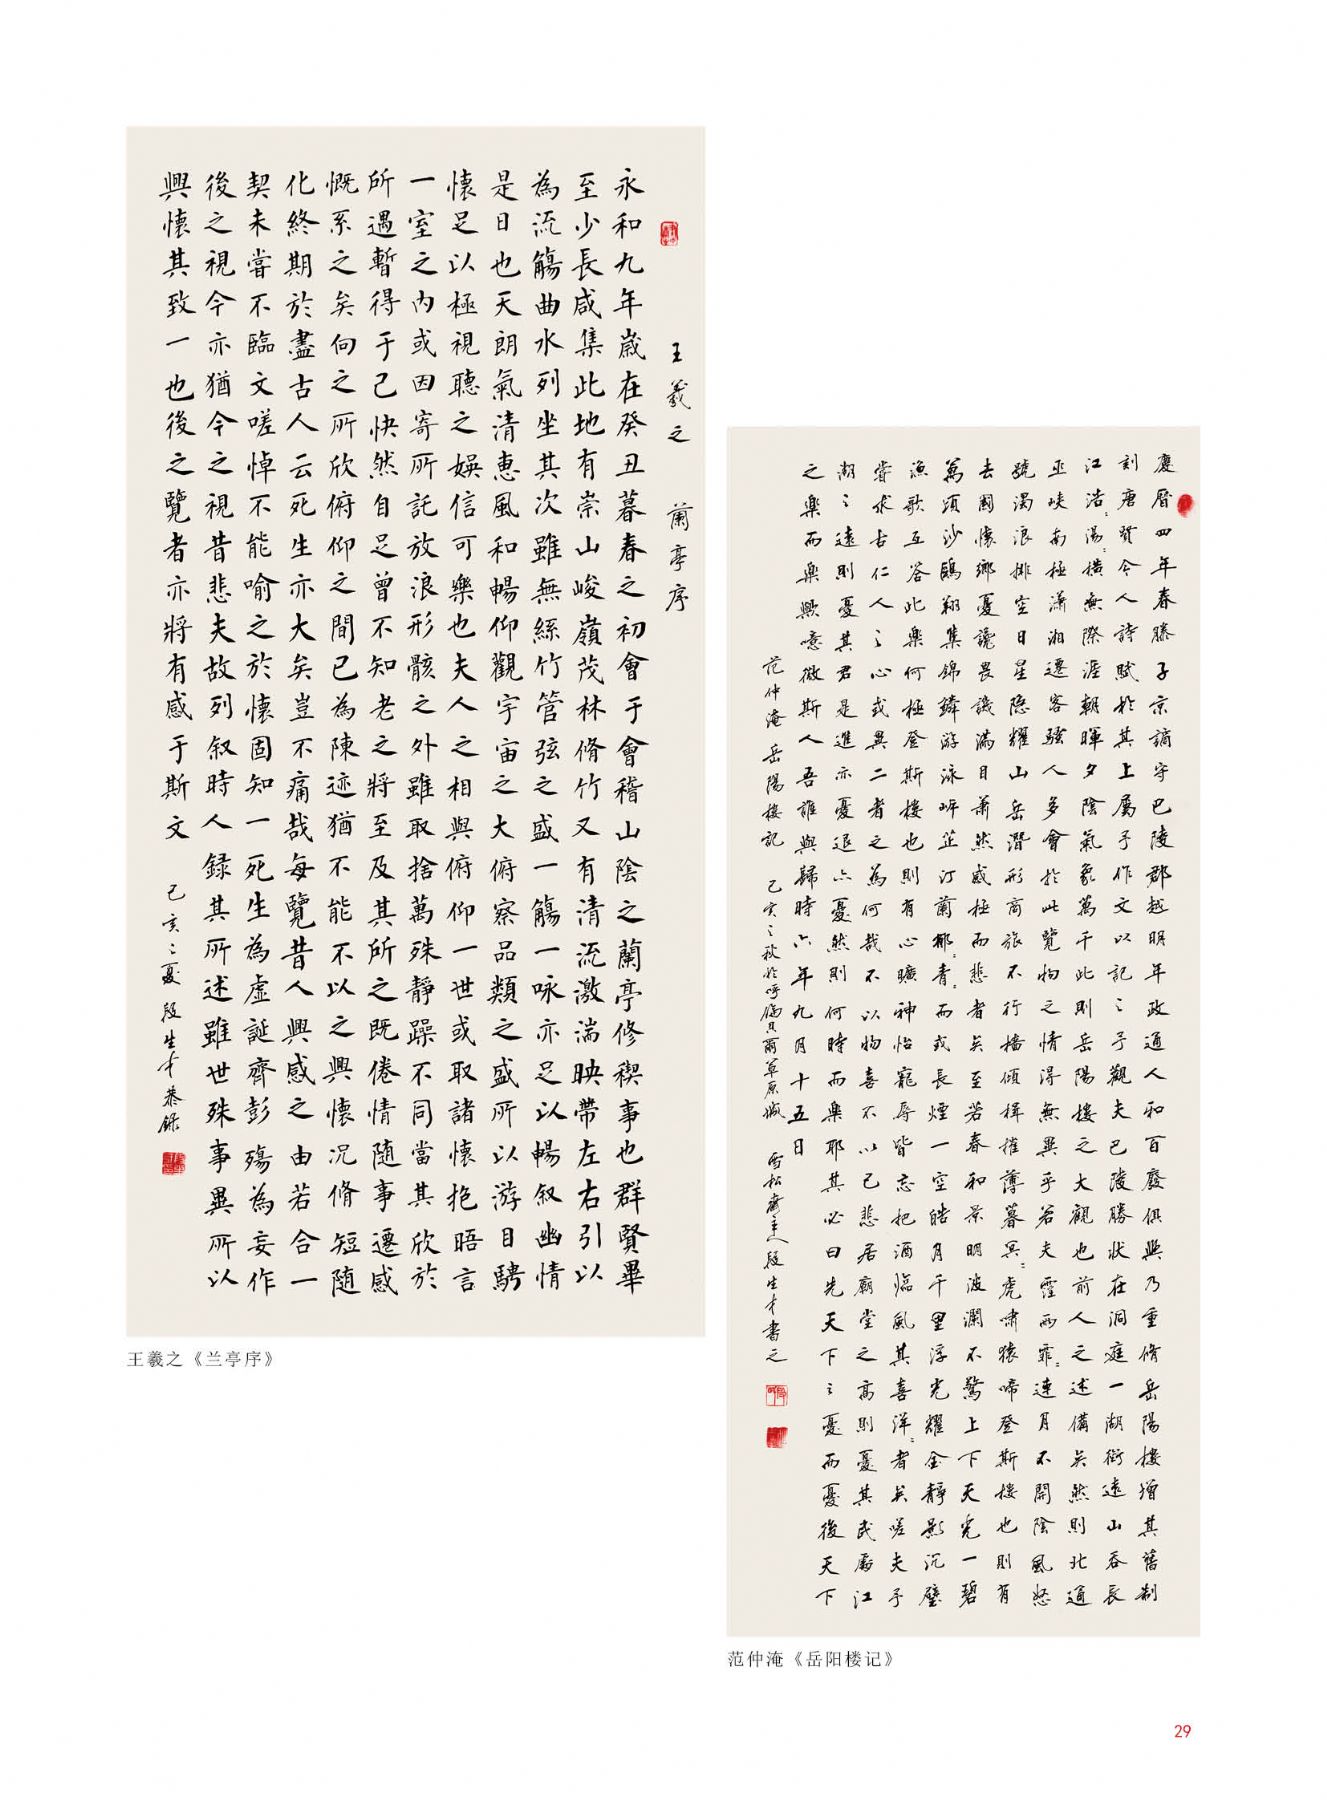 王羲之 蘭亭序
永和九年歲在癸丑暮春之初會于會稽山陰之蘭亭修禊事也群賢畢
至少長咸集此地有崇山峻嶺茂林脩竹又有清流激湍映帶左右引以
為流觴曲水列坐其次雖無絲竹管弦之盛一觴一咏亦足以暢叙幽情
是日也天朗氣清惠風和暢仰觀宇宙之大俯察品類之盛所以游目騁
懷足以極視聽之娛信可樂也夫人之相與俯仰一世或取諸懷抱晤言
一室之内或因寄所託放浪形骸之外雖取捨萬殊靜躁不同當其欣於
所遇暫得于己快然自足曾不知老之將至及其所之既倦情隨事遷感
慨系之矣向之所欣俯仰之間已為陳迹猶不能不以之興懷況脩短隨
化終期於盡古人云死生亦大矣豈不痛哉每覽昔人興感之由若合一
契未嘗不臨文嗟悼不能喻之於懷固知一死生為虛誕齊彭殤為妄作
後之視今亦猶今之視昔悲夫故列叙時人録其所述雖世殊事異所以
興懷其致一也後之覽者亦將有感于斯文 己亥〻夏段生才恭録
王羲之《兰亭序》
慶曆四年春滕子京謫守巴陵郡越明年政通人和百廢俱興乃重脩岳陽樓增其舊制
刻唐賢今人詩賦於其上屬予作文以記〻予觀夫巴陵勝狀在洞庭一湖銜遠山吞長
江浩〻湯〻橫無際涯朝暉夕陰氣象萬千此則岳陽樓之大觀也前人之述備矣然則北通
巫峽南極瀟湘遷客騷人多會於此覽物之情得無異乎若夫霪雨霏〻連月不開陰風怒
號濁浪排空日星隱耀山岳潛形商旅不行檣傾楫摧薄暮冥〻虎嘯猿啼登斯樓也則有
去國懷鄉憂讒畏譏滿目蕭然感極而悲者矣至若春和景明波瀾不驚上下天光一碧
萬頃沙鷗翔集錦鱗游泳岸芷汀蘭郁〻青〻而或長煙一空皓月千里浮光耀金靜影沉璧
漁歌互答此樂何極登斯樓也則有心曠神怡寵辱皆忘把酒臨風其喜洋〻者矣嗟夫予
嘗求古仁人〻心或異二者之為何哉不以物喜不以己悲居廟堂之高則憂其民處江
湖〻遠則憂其君是進亦憂退亦憂然則何時而樂耶其必曰先天下〻憂而憂後天下
之樂而樂歟噫微斯人吾誰與歸時六年九月十五日
范仲淹岳陽樓記 己亥〻秋於呼倫貝爾草原城 雪松齋主人段生才書之
范仲淹《岳阳楼记》
29